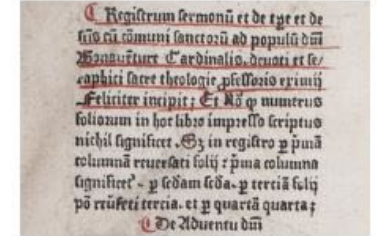 Registrum sermonū et de tp̄e et de
sc̄is cū cōmuni sanctorū ad populū dn̄i
Bonauēture Cardinalis, deuoti et se/
raphici sacre theologie ꝓfessorio eximij
Feliciter incipit; Et Nō ꝙ numerus
foliorum in hoc libro impresso scriptus
nichil significet. Sz in registro ꝑ pͥmā
columnā reuersati folij; pͥma columna
significetᷣ. ꝑ sc̄dam sc̄da. ꝑ terciā folij
tercia. et ꝑ quartā quarta;
De Aduentu dn̄i